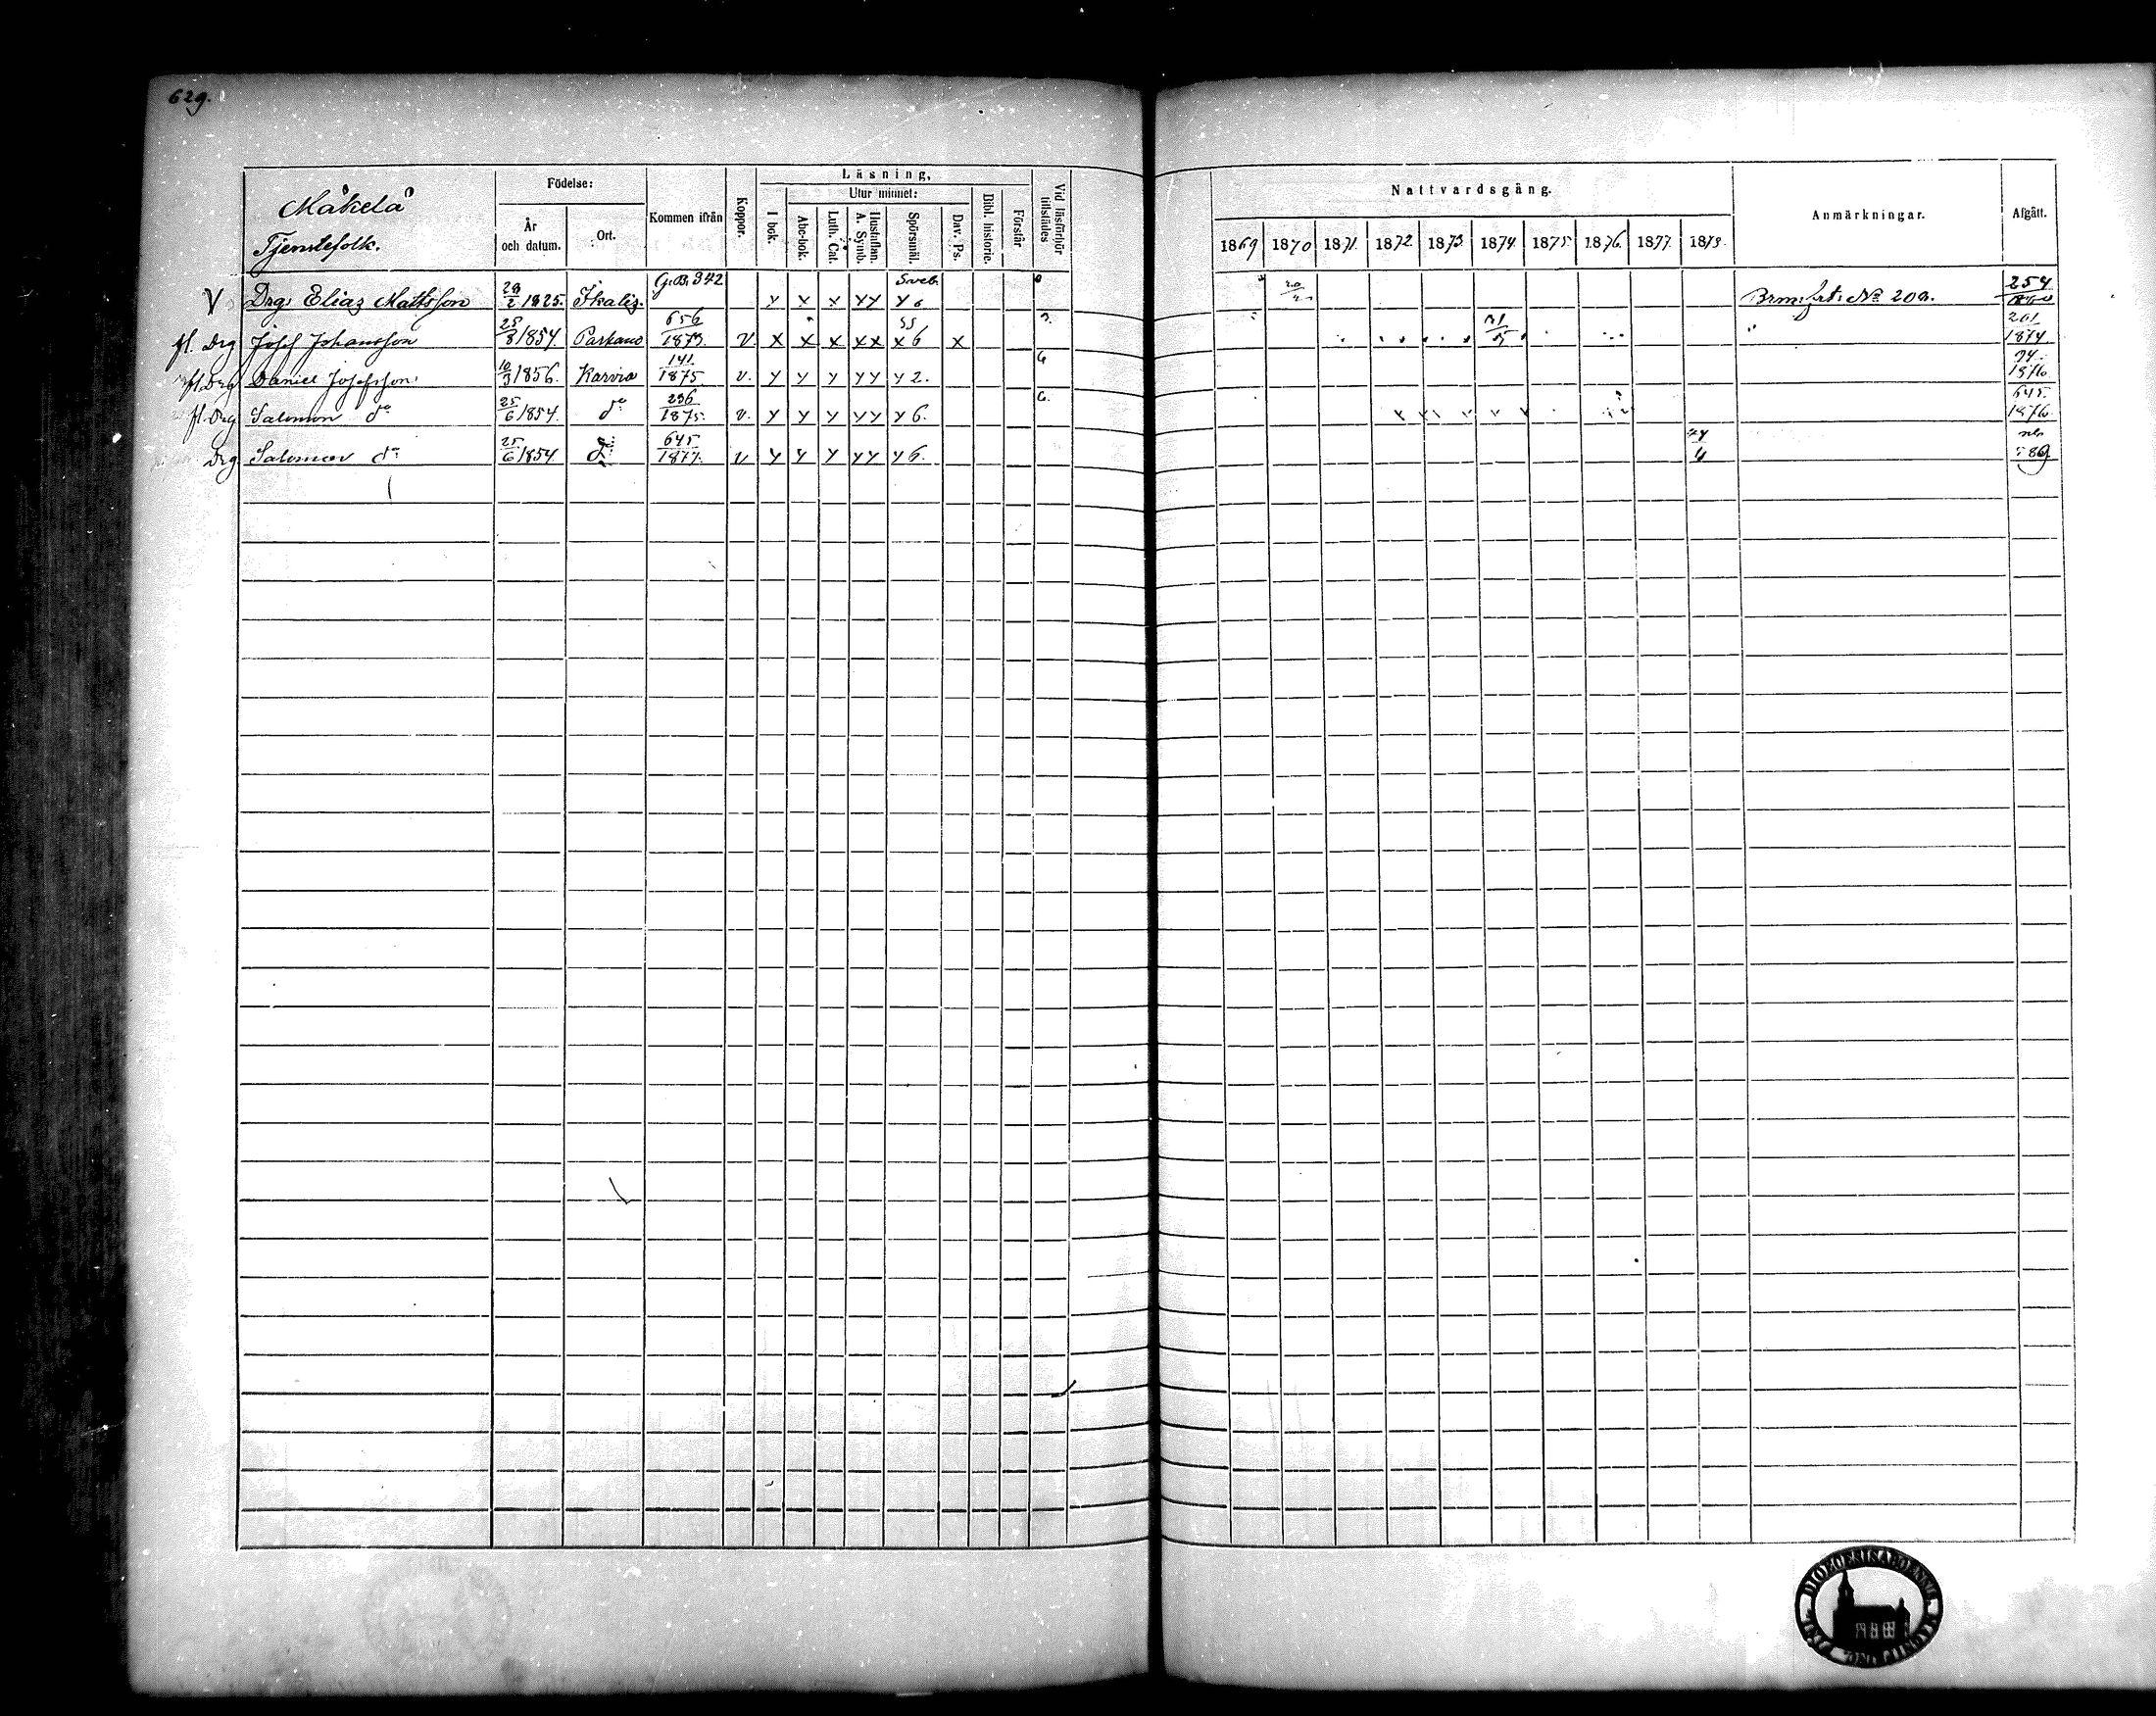 629.
Mäkelä
Tjenstefolk.
Födelse:
År och datum.
Ort.
Kommen ifrån
Koppor.
Läsning,
I bok.
Utur minnet:
Abc-bok.
Luth. Cat.
Hustaflan A. Symb.
Spörsmål.
Dav. Ps.
Bibl. historie.
Förstår
Vid läsförhör tillstädes
Nattvardsgång.
1869 1870 1871. 1872 1873 1874. 1875. 1876. 1877. 1878.
Anmärkningar.
Afgått.
V Drg: Elias Mattsson 28/2 1825. Ikalis. G. B. 342 Sveb. 6 Brm: frt: No 20a. 254
fl. Drg Josef Johansson 25/8 1854. Parkano 656/1873. v x x x xx x6 x " 261/1874.
fl Drg Daniel Josefsson 10/3 1856. Karvia 141./1875 v. y y y yy y 2. 94./1876
fl. Drg Salomon do 25/6 1854. do 236/1875. v. y y y yy y 6. 645./1876.
Drg Salomon do 25/6 1854 do 645/1877. v y y y yy y 6.
DIOECESIS ABOENSIS